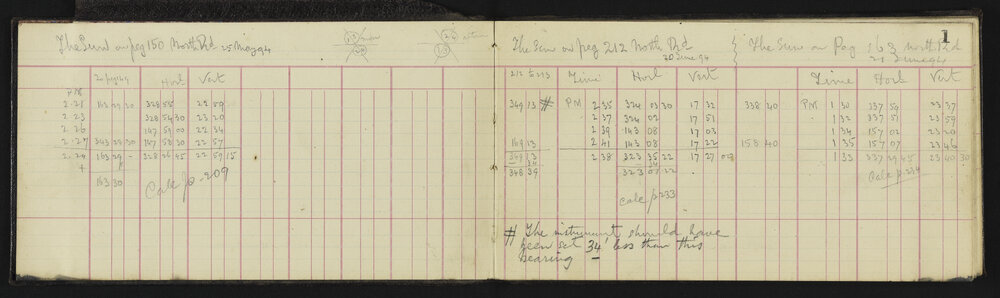 The Sun on peg 150 North Rd 25 May 94
to peg 149 Horl Vert
PM
2.21 163 29 30 328 55 22 59
2.23 328 54 30 23 20
2.26 147 59 00 22 34
2.27 343 29 30 147 58 30 22 57
2.24 163 29 328 26 45 22 59 15
+
163 30
Calc p. 209
1
The Sun on peg 212 North Rd
20 June 94
212 to 213 Time Horl Vert
349 13 # PM 2 35 324 03 30 17 32
2 37 324 02 17 51
2 39 143 08 17 03
169 13 2 41 143 08 17 22
349 13 2 38 323 35 22 17 27
34 34
348 39 323 01 22
Calc p 233
# The instrument should have
been set 34' less than this
bearing
The Sun on Peg 163 North Rd
21 June 94
Time Horl Vert
338 40 PM 1 30 337 59 23 37
1 32 337 51 23 59
1 34 157 02 23 20
158 40 1 35 157 07 23 46
1 33 337 29 45 23 40 30
Calc p 234